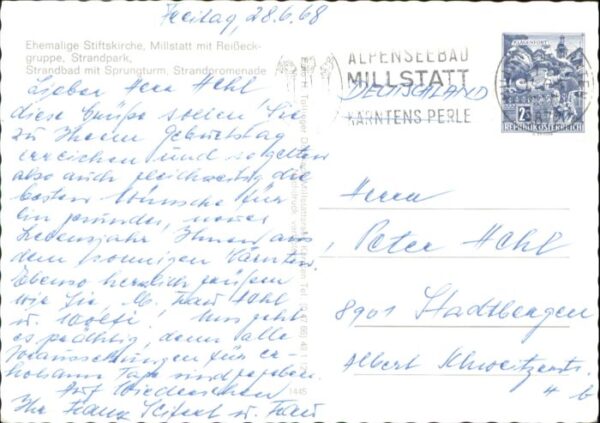 Freitag, 28.6.68
Ehemalige Stiftskirche, Millstatt mit Reißeck-
gruppe, Strandpark,
Strandbad mit Sprungturm, Strandpromenade
Lieber Herr Hehl!
diese Grüße sollen Sie
zu Ihrem Geburtstag
erreichen und so gelten
also auch gleichzeitig die
besten Wünsche für
ein gesundes, neues
Lebensjahr Ihnen aus
dem sonnigen Kärnten.
Ebenso herzlich grüßen
wir Sie, Frau Hehl
u. Wolfi! Uns geht
es prächtig, denn alle
Voraussetzungen für er-
holsame Tage sind gegeben.
Auf Wiedersehen
Ihr Franz u. Frau
1445
ALPENSEEBAD
MILLSTATT
KÄRNTENS PERLE
DEUTSCHLAND
REPUBLIK ÖSTERREICH
Herrn
Peter Hehl
8901 Stadtbergen
Albert Schweitzerstr.
4 b